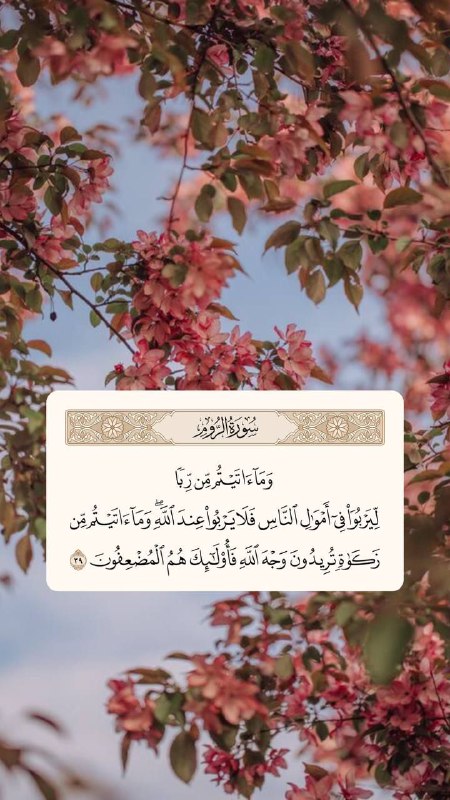 سُورَةُ الرُّومِ
وَمَآ ءَاتَيْتُم مِّن رِّبًا
لِّيَرْبُوَا۟ فِىٓ أَمْوَٰلِ ٱلنَّاسِ فَلَا يَرْبُوا۟ عِندَ ٱللَّهِ ۖ وَمَآ ءَاتَيْتُم مِّن
زَكَوٰةٍ تُرِيدُونَ وَجْهَ ٱللَّهِ فَأُو۟لَٰٓئِكَ هُمُ ٱلْمُضْعِفُونَ ٣٩